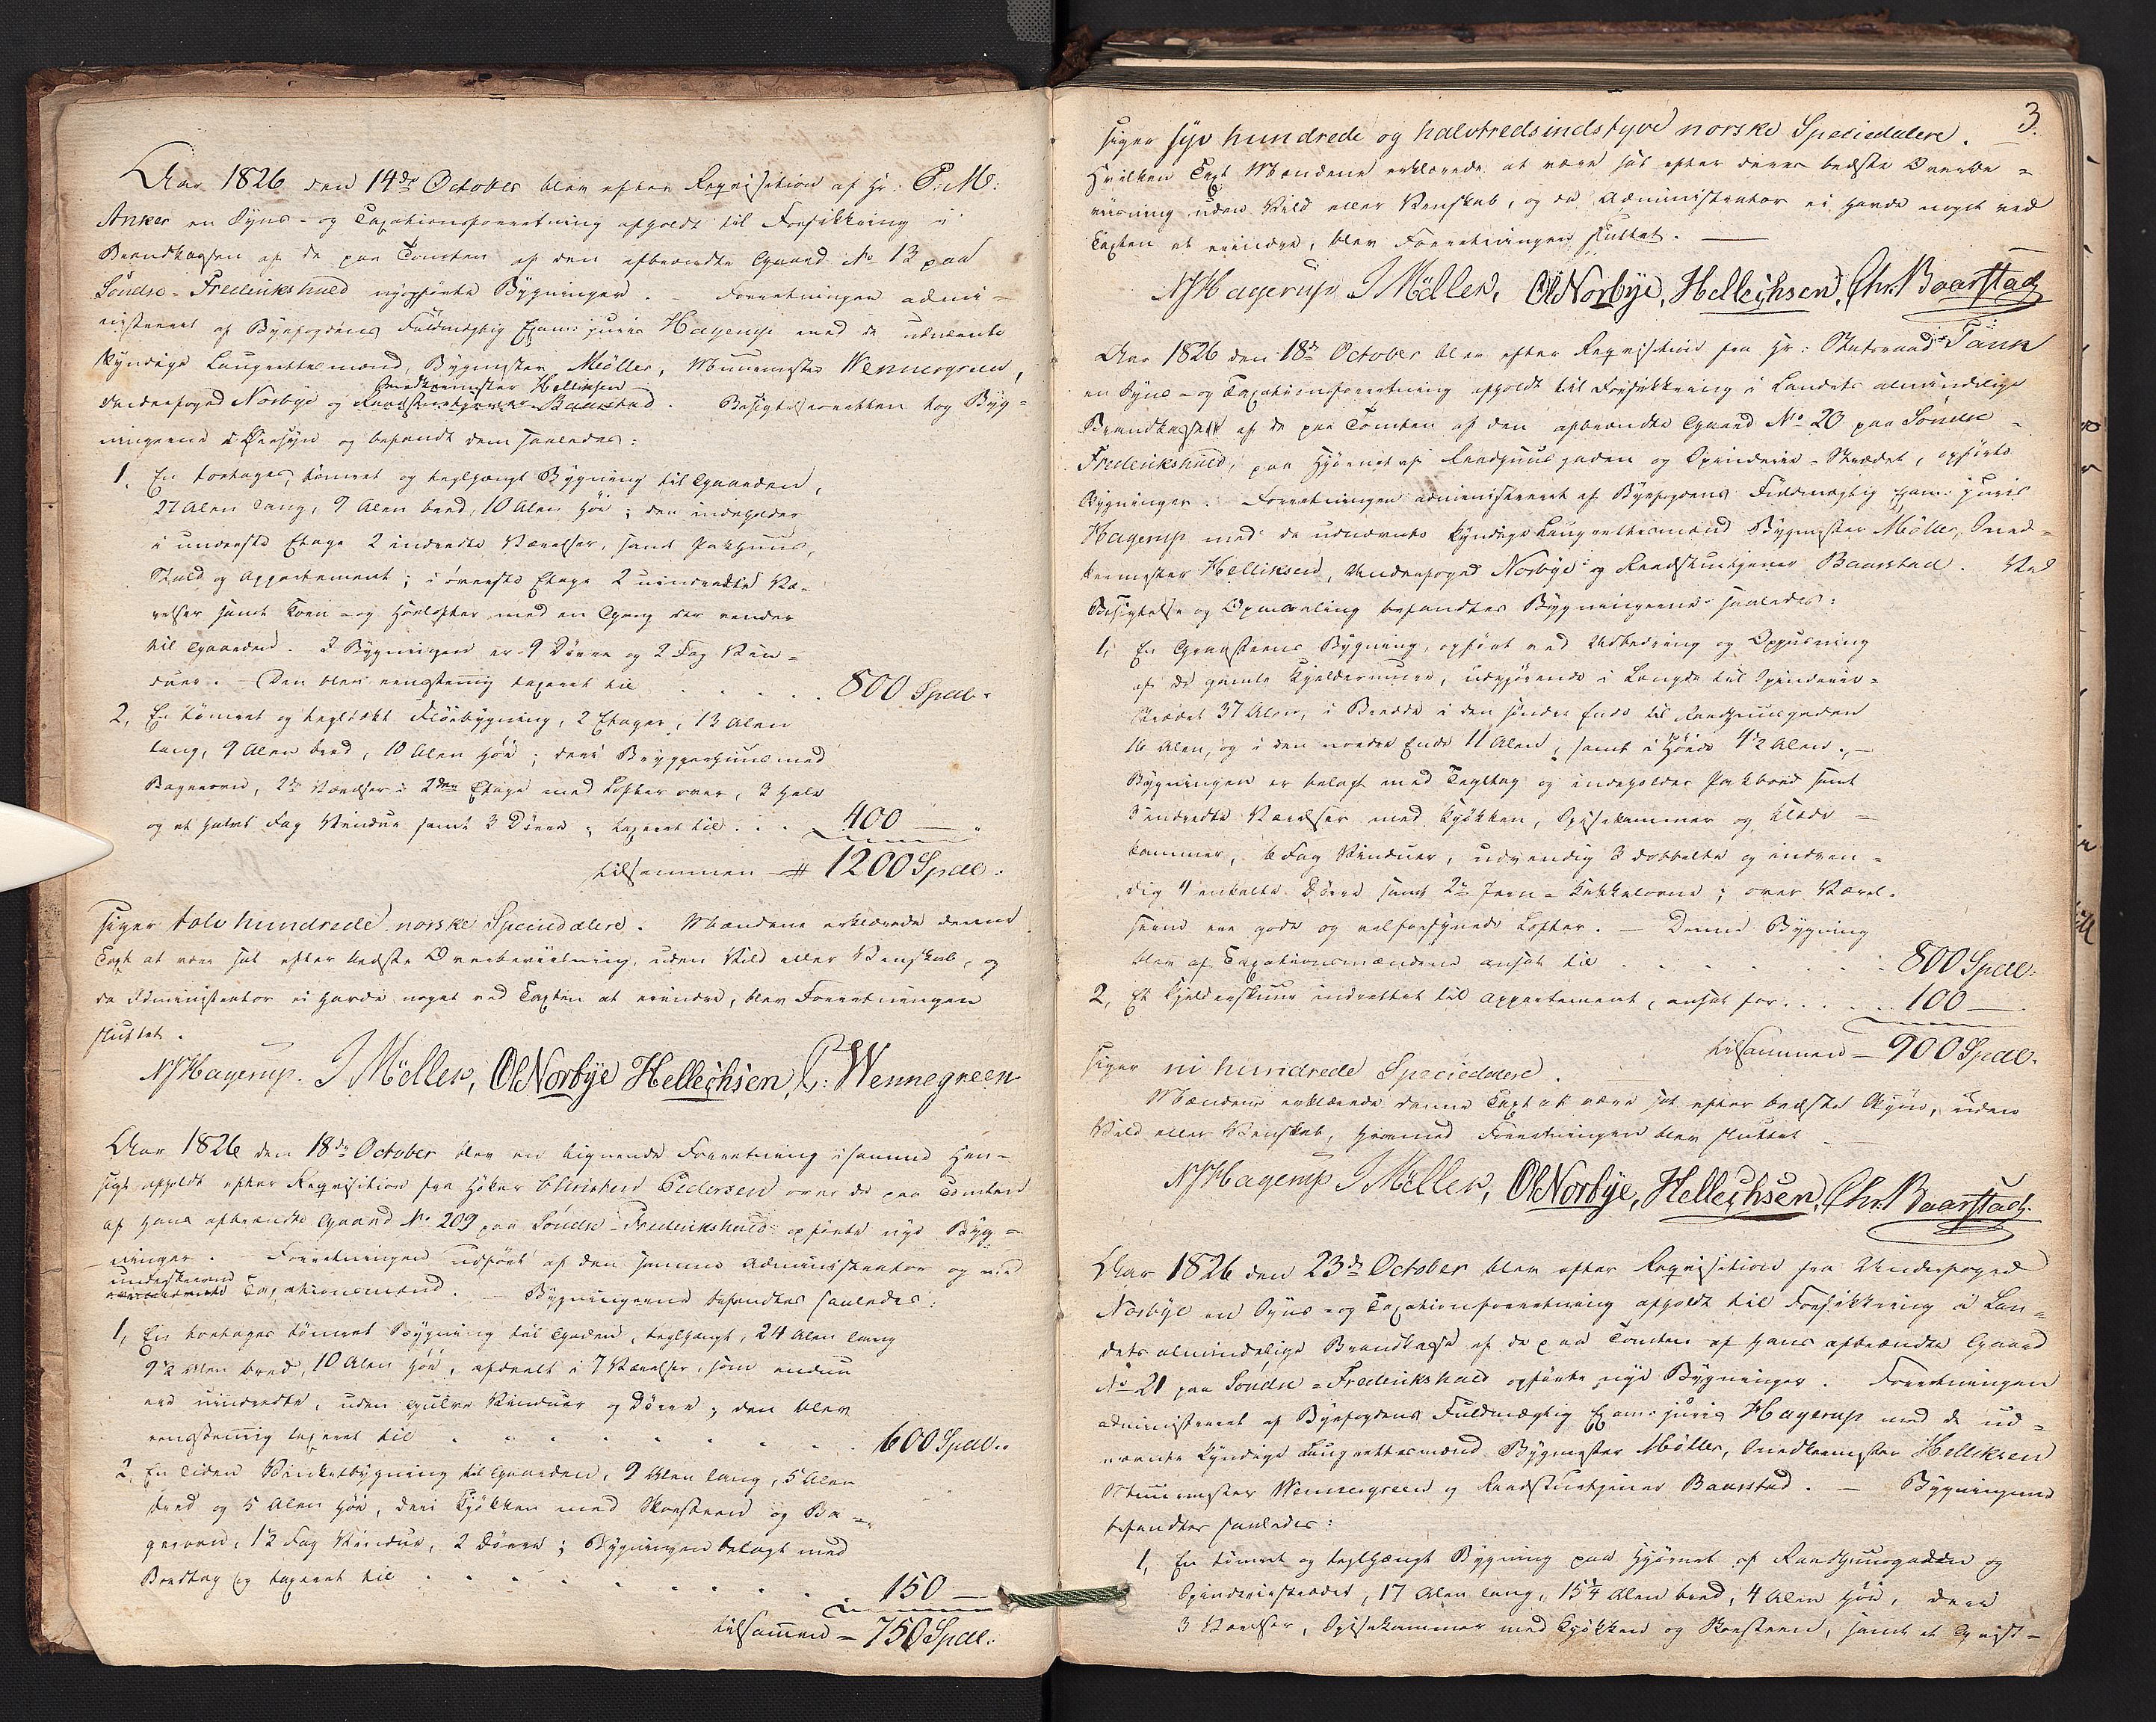 Aar 1826 den 14de October blev efter Reqvisition af Hr: P: M:
Anker en Syns- og Taxationsforretning afholdt til Forsikkring i
Brandkassen af de paa Tomten af den afbrændte Gaard No 13 paa
Søndre-Frederikshald nyopførte Bygninger. – Forretningen admi-
nistreret af Byefogdens Fuldmægtig Exam: juris Hagerup med de udnævnte
kyndige Laugrettesmænd, Bygmester Møller, Muurmester Wennergreen,
Snedkermester Helliksen
Underfoged Norbye og Raadstuetjener Baarstad. Besigtelsesretten tog Byg-
ningerne i Øiesyn og befandt dem saaledes:
1. En toetages, tømret og teglhængt Bygning til Gaarden,
27 Alen lang, 9 Alen bred, 10 Alen høi; den indeholder
i underste Etage 2 indredte Værelser, samt Pakhuus,
Stald og Appartement; i øverste Etage 2 uindredte Væ-
relser samt Korn- og Høelofter med en Gang der vender
til Gaarden. I Bygningen er 9 Dørre og 2 Fag Vin-
duer. – Den blev eenstemmig taxeret til . . . . . 800 Spd:
2, En tømret og tegltækt Fløibygning, 2 Etager, 13 Alen
lang, 9 Alen bred, 10 Alen høi; deri Bryggerhuus med
Bagerovn, 2de Værelser i 2den Etage med Lofter over, 3 hele
og et halvt Fag Vinduer samt 3 Dørre; taxeret til . . . 400 — „
tilsammen # 1200 Spdl:
siger tolv hundrede norske Speciedalere. Mændene erklærede denne
Taxt at være sat efter bedste Overbeviisning, uden Vild eller Venskab, og
da Administrator ei havde noget ved Taxten at erindre, blev Forretningen
sluttet.
NJHagerup. J Møller, OlNorbye Hellechsen, C: Wennegreen
Aar 1826 den 18de October blev en lignende Forretning i samme Hen-
sigt afholdt efter Reqvisition fra Høker Christen Pedersen over de paa Tomten
af hans afbrændte Gaard No 209 paa Søndre-Frederikshald opførte nye Byg-
ninger. – Forretningen udført af den samme Administrator og med
underskrevne
Taxationsmænd. – Bygningerne befandtes saaledes:
1, En toetages tømret Bygning til Gaden, teglhængt, 24 Alen lang
9½ Alen bred, 10 Alen høi, afdeelt i 7 Værelser, som endnu
ere uindredte, uden Gulve Vinduer og Dørre; den blev
eenstemmig taxeret til . . . . . . . 600 Spdl:
2, En liden Vinkelbygning til Gaarden, 9 Alen lang, 5 Alen
bred og 5 Alen høi, deri Kjøkken med Skorsteen og Ba-
gerovn, 1½ Fag Vindue, 2 Dørre; Bygningen belagt med
Bordtag og taxeret til . . . . . . . 150 —
tilsammen – 750 Spdl:
3.
siger syv hundrede og halvtredsindstyve norske Speciedalere.
Hvilken Taxt Mændene erklærede at være sat efter deres bedste Overbe-
viisning uden Vild eller Venskab, og da Administrator ei havde noget ved
Taxten at erindre, blev Forretningen sluttet.
NJHagerup J Møller, OlNorbye, Hellechsen, Chr. Baarstad
Aar 1826 den 18de October blev efter Reqvisition fra Hr: Statsraad Tank
en Syns- og Taxationsforretning afholdt til Forsikkring i Landets almindelige
Brandkasse af de paa Tomten af den afbrændte Gaard No 20 paa Søndre-
Frederikshald, paa Hjørnet af Raadhuusgaden og Spinderie-Strædet, opførte
Bygninger. Forretningen administreret af Byefogdens Fuldmægtig Exam: juris
Hagerup med de udnævnte kyndige Laugrettesmænd Bygmester Møller, Sned-
kermester Helliksen, Underfoged Norbye og Raadstuetjener Baarstad. Ved
Besigtelse og Opmaaling befandtes Bygningerne saaledes:
1, En Graasteens Bygning, opført ved Udbedring og Oppudsning
af de gamle Kjeldermure, udgjørende i Længde til Spinderie-
Strædet 37 Alen, i Bredde i den søndre Ende til Raadhuusgaden
16 Alen, og i den nordre Ende 11 Alen, samt i Høide 4½ Alen. –
Bygningen er belagt med Tegltag og indeholder Pakbod samt
3 indredte Værelser med Kjøkken, Spisekammer og Klæde-
kammer, 6 Fag Vinduer, udvendig 3 dobbelte og indven-
dig 4 enkelte Dørre samt 2de Jern-Kakkelovne; over Værel-
serne ere gode og velforsynede Lofter. – Denne Bygning
blev af Taxationsmændene ansat til . . . . . . 800 Spdl:
2, Et Kjelderskuur indrettet til Appartement, ansat for . . . . 100 —
tilsammen – 900 Spdl.
siger ni hundrede Speciedalere.
Mændene erklærede denne Taxt at være sat efter bedste Skjøn, uden
Vild eller Venskab, hvormed Forretningen blev sluttet –
NJHagerup J Møller, OlNorbye, Hellechsen, Chr. Baarstad.
Aar 1826 den 23de October blev efter Reqvisition fra Underfoged
Norbye en Syns- og Taxationsforretning afholdt til Forsikkring i Lan-
dets almindelige Brandkasse af de paa Tomten af hans afbrændte Gaard
No 21 paa Søndre-Frederikshald opførte nye Bygninger. Forretningen
administreret af Byefogdens Fuldmægtig Exam: juris Hagerup med de ud-
nævnte kyndige Laugrettesmænd Bygmester Møller, Snedkermester Helliksen
Muurmester Wennergreen og Raadstuetjener Baarstad. – Bygningerne
befandtes saaledes:
1, En tømret og teglhængt Bygning paa Hjørnet af Raadhuusgaden og
Spinderiestrædet, 17 Alen lang, 15¼ Alen bred, 4 Alen høi, deri
3 Værelser, Spisekammer med Kjøkken og Skorsteen, samt et Qvist-